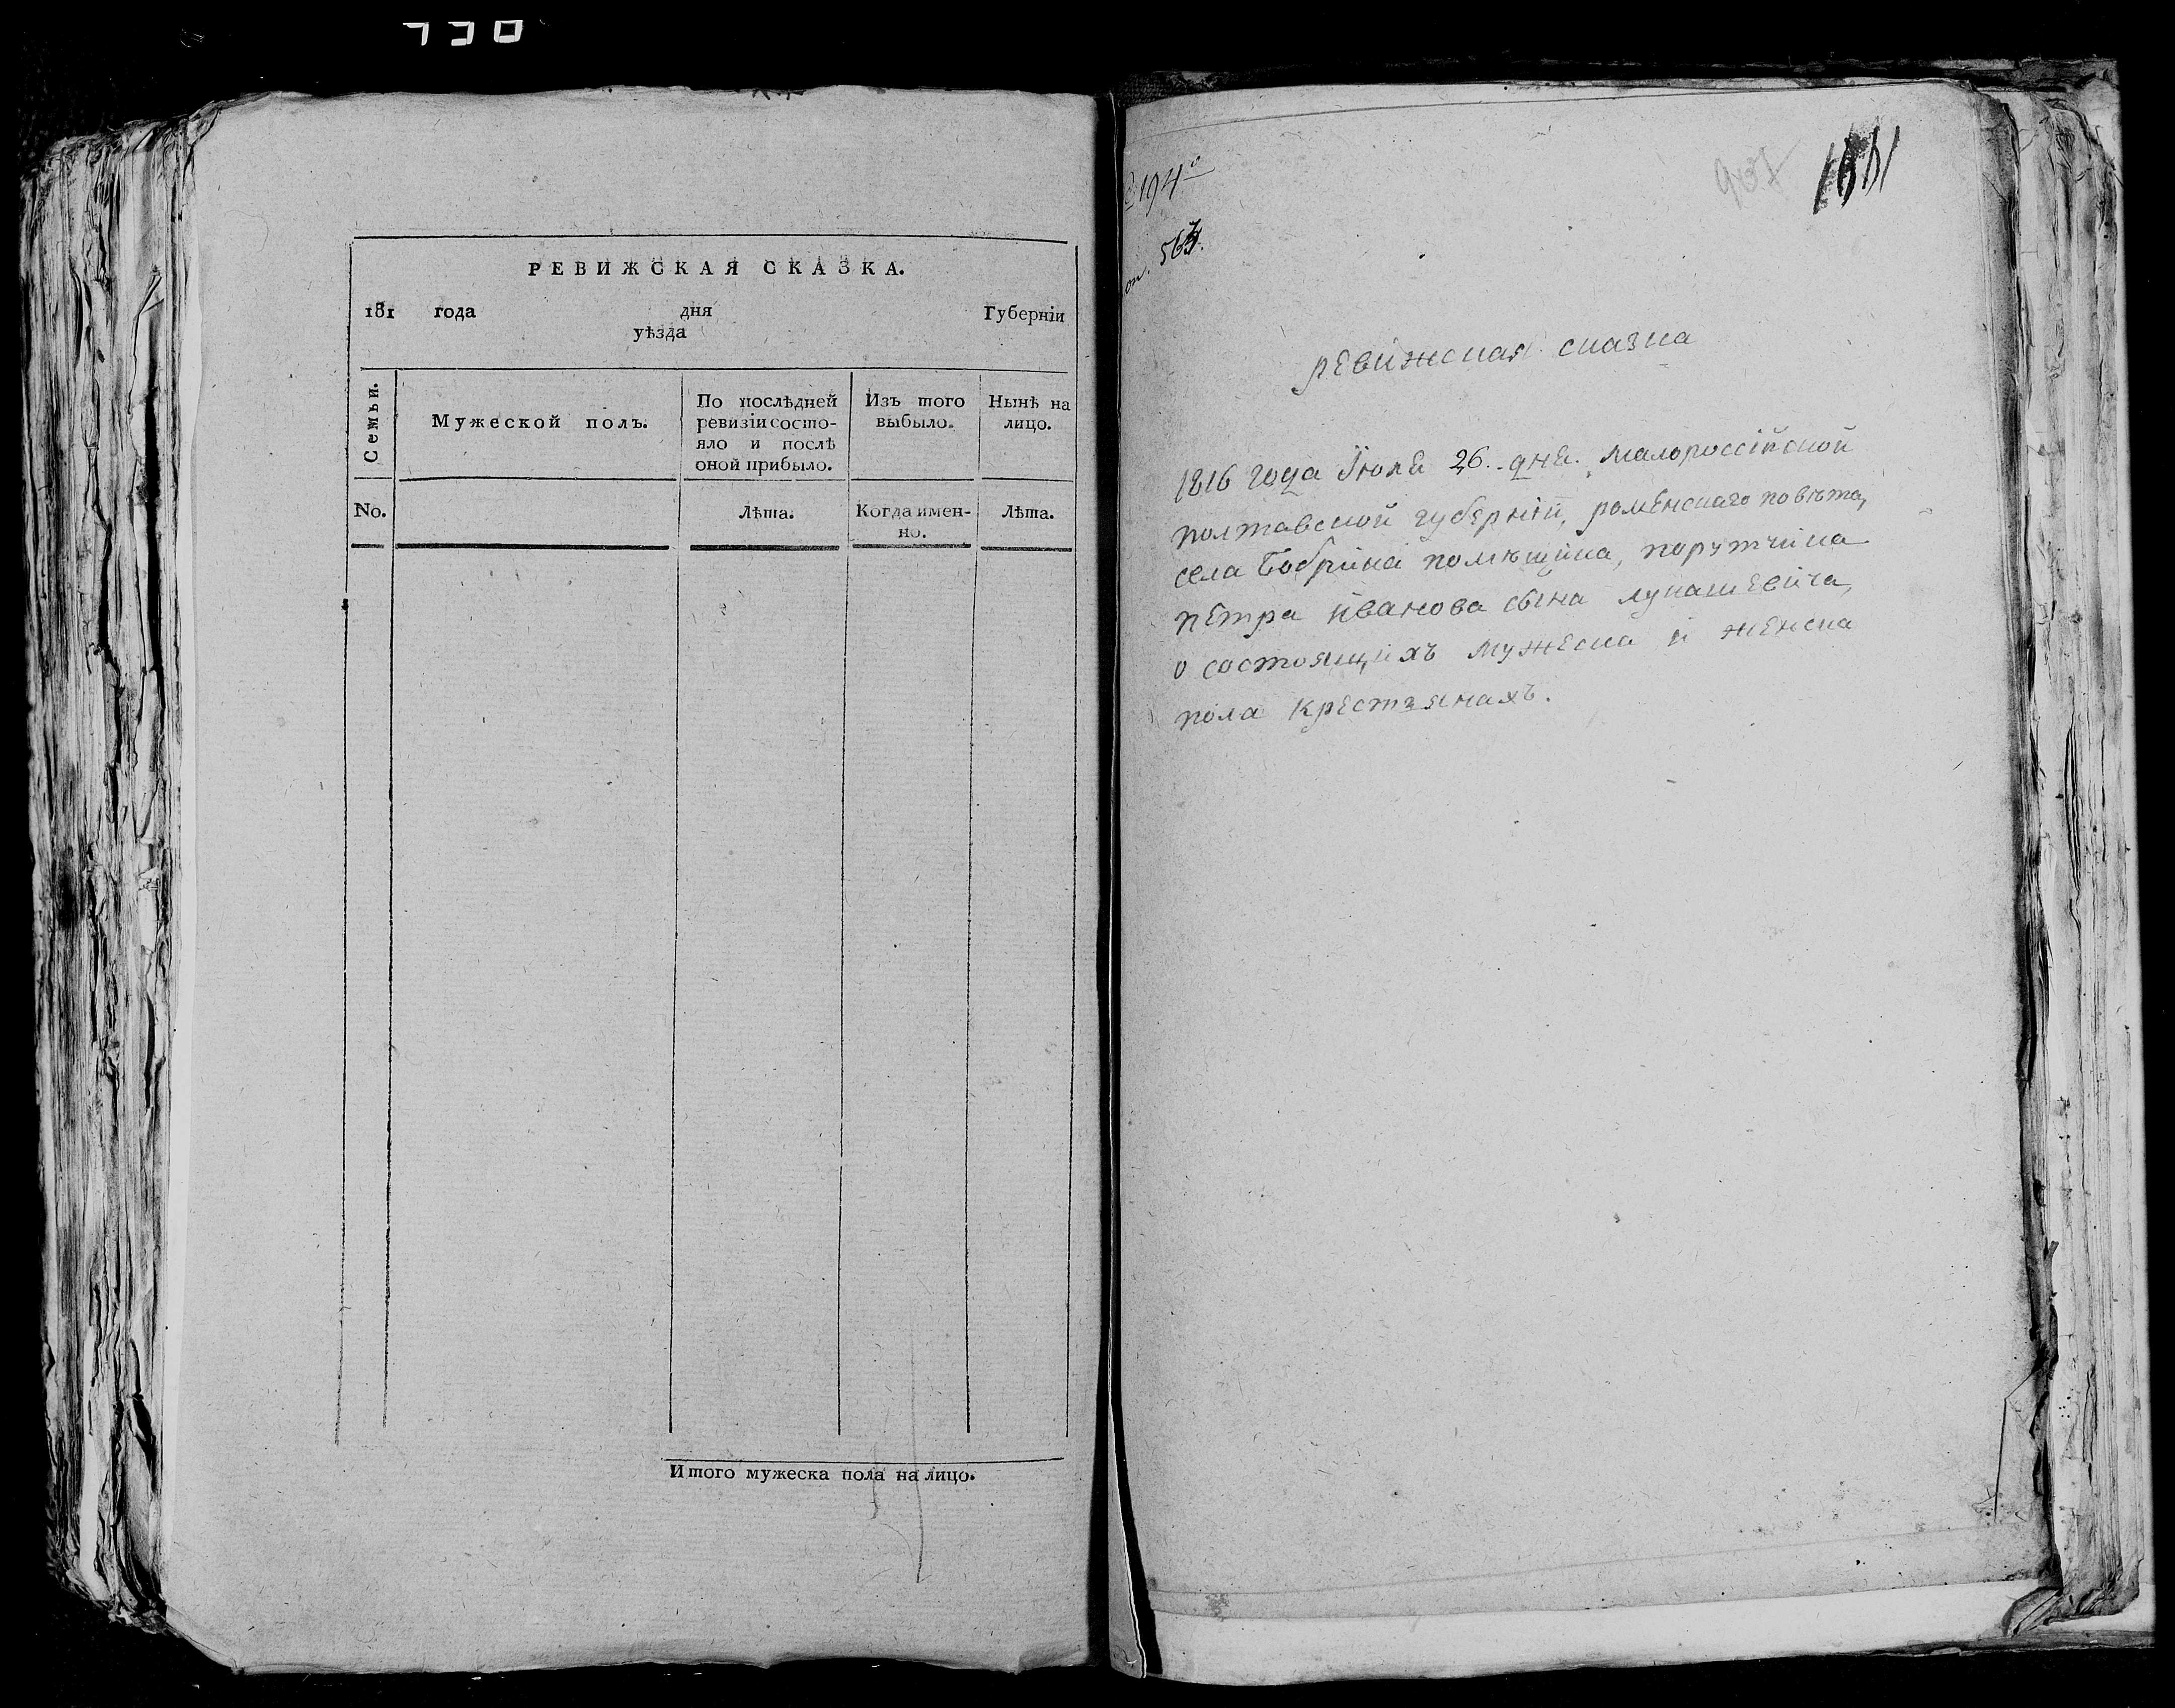 РЕВИЖСКАЯ СКАЗКА.
181 года дня Губерніи
уѣзда
Семьи.
Мужеской полъ.
По послѣдней
ревизіи состо-
яло и послѣ
оной прибыло.
Изъ того
выбыло.
Нынѣ на
лицо.
No.
Лѣта.
Когда имен-
но.
Лѣта.
Итого мужеска пола на лицо.
194
ревижская сказка
1816 года Июля 26. дня. Малороссійской
полтавской губерніи, роменскаго повѣта,
села Бобрика помѣщика, порутчика
петра иванова сына лукашевича,
о состоящихъ мужеска и женска
пола крестьянахъ.